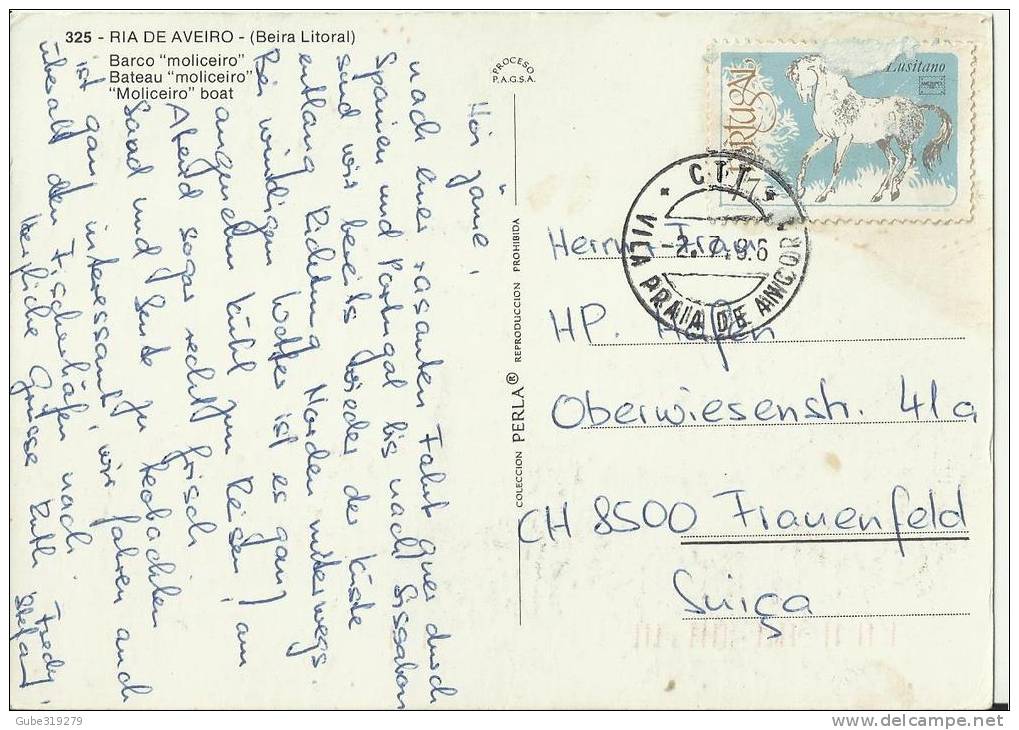 325 - RIA DE AVEIRO - (Beira Litoral)
Barco "moliceiro"
Bateau "moliceiro"
"Moliceiro" boat
PROCESO
P.A.G.S.A.
COLECCION PERLA® REPRODUCCION PROHIBIDA
PORTUGAL
Lusitano
CTT
-2.7.8.6
VILA PRAIA DE ANCORA
Herrn + Frau
HP. Hafen
Oberwiesenstr. 41a
CH 8500 Frauenfeld
Suiça
nach einer rasanten Fahrt quer durch
Spanien und Portugal bis nach Lissabon
sind wir bereits wieder der Küste
entlang Richtung Norden unterwegs.
Bei windigem Wetter ist es ganz
angenehm kühl zum Reisen! am
Abend sogar recht frisch
Sand und Leute zu beobachten
ist ganz interessant, wir fahren auch
überall den Fischerhäfen nach
Herzliche Grüsse Ruth, Fredy,
Stefan
Gube319279
www.delcampe.net